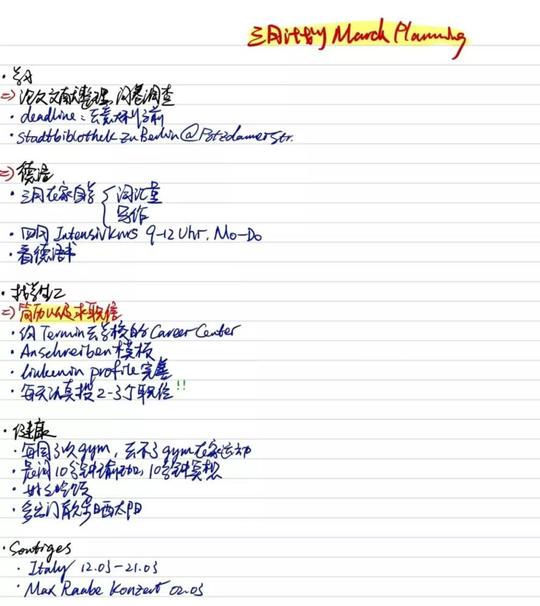 三月计划 March Planning
· 学习
=> 论文文献整理, 问卷调查
· deadline: 去意大利之前
· Stadtbibliothek zu Berlin @Potzdamer Str.
=> 德语
· 三月在家自学 { 词汇量
写作
· 四月 Intensivkurs 9-12 Uhr, Mo-Do
· 看德语书
· 找学生工
=> 简历以及求职信
· 约 Termin 去学校的 Career Center
· Anschreiben 模板
· linkedin profile 完善
· 每天认真投 2-3个职位 !!
· 健康
· 每周3次gym, 去不了gym在家运动
· 晨间10分钟瑜伽, 10分钟冥想
· 好好吃饭
· 多出门散步晒太阳
· Sontiges
· Italy 12.03-21.03
· Max Raabe Konzert 02.03